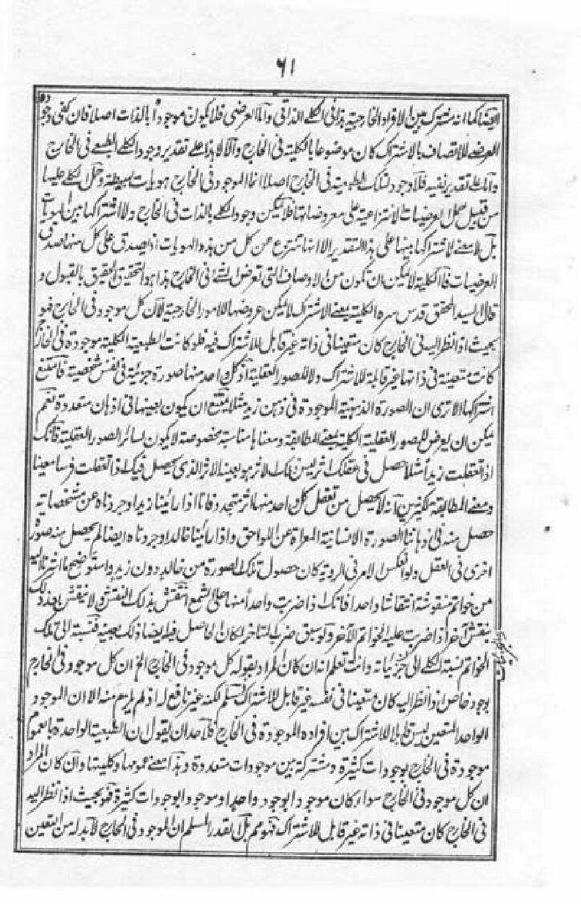 ٦١
انه مشترك بين الافراد الخارجية هذا فى الكلى الذاتى واما العرضى فلا يكون موجودا بالذات اصلا فان كفى وجود
المعروض للاتصاف بالاشتراك كان موضوعا بالكلية فى الخارج والا لا هذا على تقدير وجود الكلى الطبعى فى الخارج
واما على تقدير نفيه فلا وجود لتلك الطبيعة فى الخارج اصلا انما الموجود فى الخارج هويات بسيطة وحمل الكلى عليها
من قبيل حمل العرضيات الانتزاعية على معروضاتها فلا يمكن وجود الكلى بالذات فى الخارج ولا اشتراكها بين الهويات
بل لا معنى لاشتراكها بينها على هذا التقدير الا انها تنتزع عن كل من هذه الهويات اذا صدق على كل منها صدق
العرضيات فالكلية لا يمكن ان تكون من الاوصاف التى تعرض لشئ فى الخارج هذا هو التحقيق الحقيق بالقبول و
قال السيد المحقق قدس سره الكلية بمعنى الاشتراك لا يمكن عروضها للامور الخارجية لان كل موجود فى الخارج فهو
بحيث اذا نظر اليه فى الخارج كان متعينا فى ذاته غير قابل للاشتراك فيه فلو كانت الطبيعة الكلية موجودة فى الخارج
كانت متعينة فى ذاتها غير قابلة للاشتراك ولا للصور العقلية اذ كل واحد منها صورة جزئية فى نفس شخصية فامتنع
اشتراكها الا ترى ان الصورة الذهنية الموجودة فى ذهن زيد مثلا يمتنع ان يكون بعينها فى اذهان متعددة نعم
يمكن ان يعرض للصور العقلية الكلية بمعنى المطابقة ومعناها مناسبة مخصوصة لا يكون لسائر الصور العقلية فانك
اذا تعقلت زيدا مثلا حصل فى عقلك اثر ليس ذلك الاثر هو بعينه الاثر الذى يحصل فيك اذا تعقلت فرسا معينا
ومعنى المطابقة لكثيرين انه لا يحصل من تعقل كل واحد منها اثر متجدد فانا اذا رأينا زيدا وجردناه عن مشخصاته
حصل منه فى اذهاننا الصورة الانسانية المعراة عن اللواحق واذا رأينا خالدا وجردناه ايضا لم يحصل منه صورة
اخرى فى العقل ولو انعكس الامر فى الرؤية كان حصول تلك الصورة من خالد دون زيد واستوضح ما اشرنا اليه
من خواتم منقوشة انتقاشا واحدا فانك اذا ضربت واحدا منها على الشمع انتقش بذلك النقش ولا ينتقش بعد ذلك
بنقش آخر اذا ضربت عليه الخواتم الاخر ولو سبق ضرب المتأخر لكان الحاصل فيه ايضا ذلك بعينه فنسبته الى تلك
الخواتم نسبة الكلى الى جزئياته وانت تعلم انه ان كان المراد بقوله كل موجود فى الخارج الخ ان كل موجود فى الخارج
بوجود خاص اذا نظر اليه كان متعينا فى نفسه غير قابل للاشتراك فمسلم لكنه غير نافع له اذ لم يلزم منه الا ان الموجود
الواحد المتعين ليس قابلا للاشتراك بين افراده الموجودة فى الخارج فلاحد ان يقول ان الطبيعة الواحدة بالعموم
موجودة فى الخارج بوجودات كثيرة ومشتركة بين موجودات متعددة وهذا معنى عمومها وكليتها وان كان المراد
ان كل موجود فى الخارج سواء كان موجودا بوجود واحد او موجودا بوجودات كثيرة فهو بحيث اذا نظر اليه
فى الخارج كان متعينا فى ذاته غير قابل للاشتراك فهو مم بل القدر المسلم ان الموجود فى الخارج لا بد له من التعين